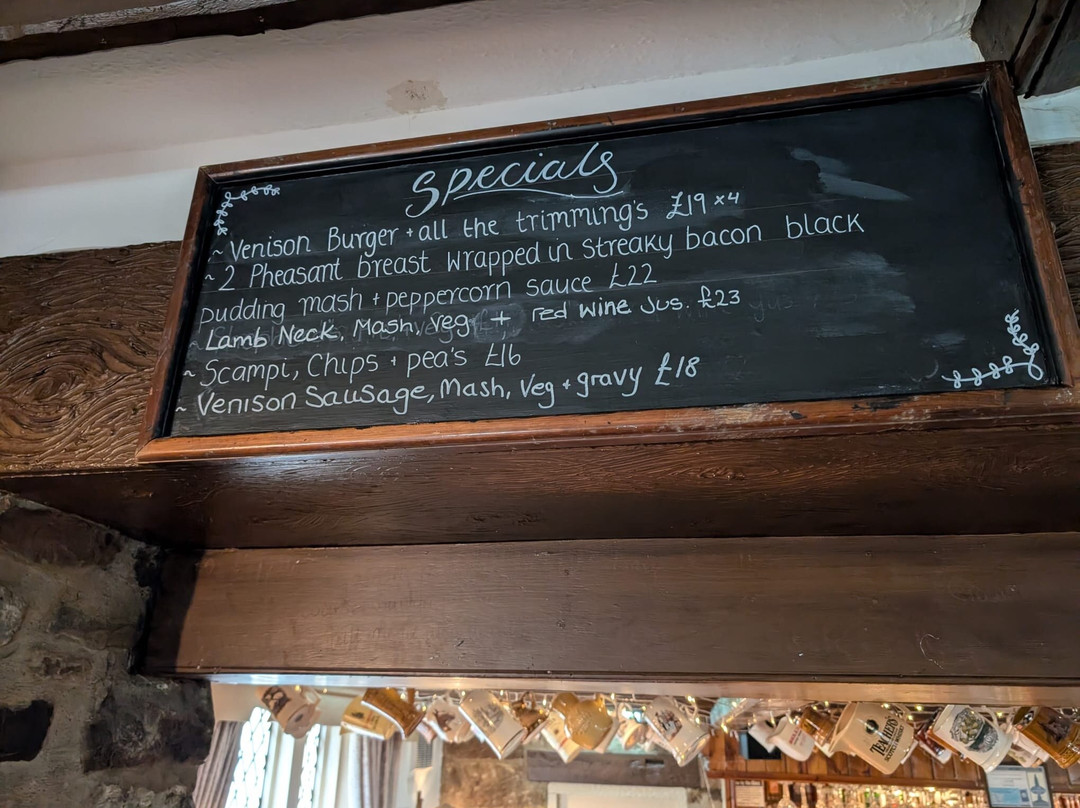 Specials
~ Venison Burger + all the trimming's £19 x4
~ 2 Pheasant breast wrapped in streaky bacon black
pudding mash + peppercorn sauce £22
~ Lamb Neck, Mash, veg, + red wine Jus. £23
~ Scampi, Chips + pea's £16
~ Venison Sausage, Mash, Veg + gravy £18